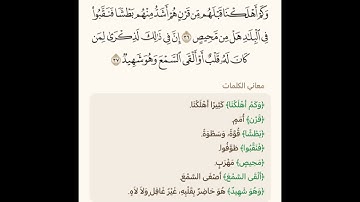 وَكَمْ أَهْلَكْنَا قَبْلَهُم مِّن قَرْنٍ هُمْ أَشَدُّ مِنْهُم بَطْشًا فَنَقَّبُوا۟
فِى ٱلْبِلَٰدِ هَلْ مِن مَّحِيصٍ ٣٦ إِنَّ فِى ذَٰلِكَ لَذِكْرَىٰ لِمَن
كَانَ لَهُۥ قَلْبٌ أَوْ أَلْقَى ٱلسَّمْعَ وَهُوَ شَهِيدٌ ٣٧
معاني الكلمات
﴿وَكَمْ أَهْلَكْنَا﴾ كَثِيرًا أَهْلَكْنَا.
﴿قَرْنٍ﴾ أُمَمٍ.
﴿بَطْشًا﴾ قُوَّةً، وَسَطْوَةً.
﴿فَنَقَّبُوا﴾ طَوَّفُوا.
﴿مَحِيصٍ﴾ مَهْرَبٍ.
﴿أَلْقَى السَّمْعَ﴾ أَصْغَى السَّمْعَ.
﴿وَهُوَ شَهِيدٌ﴾ هُوَ حَاضِرٌ بِقَلْبِهِ، غَيْرُ غَافِلٍ وَلَا لَاهٍ.